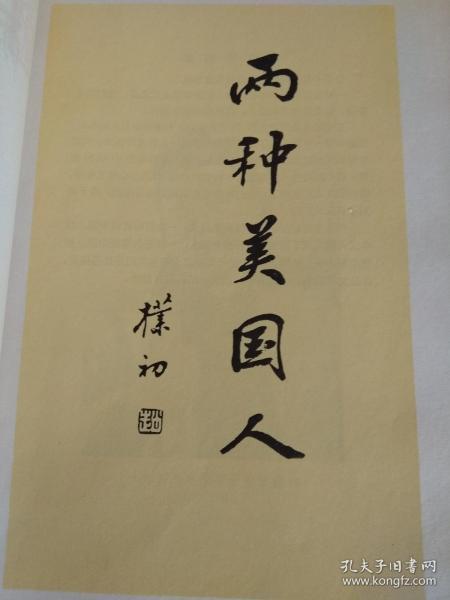 两种美国人
樸初
赵
孔夫子旧书网
www.kongfz.com